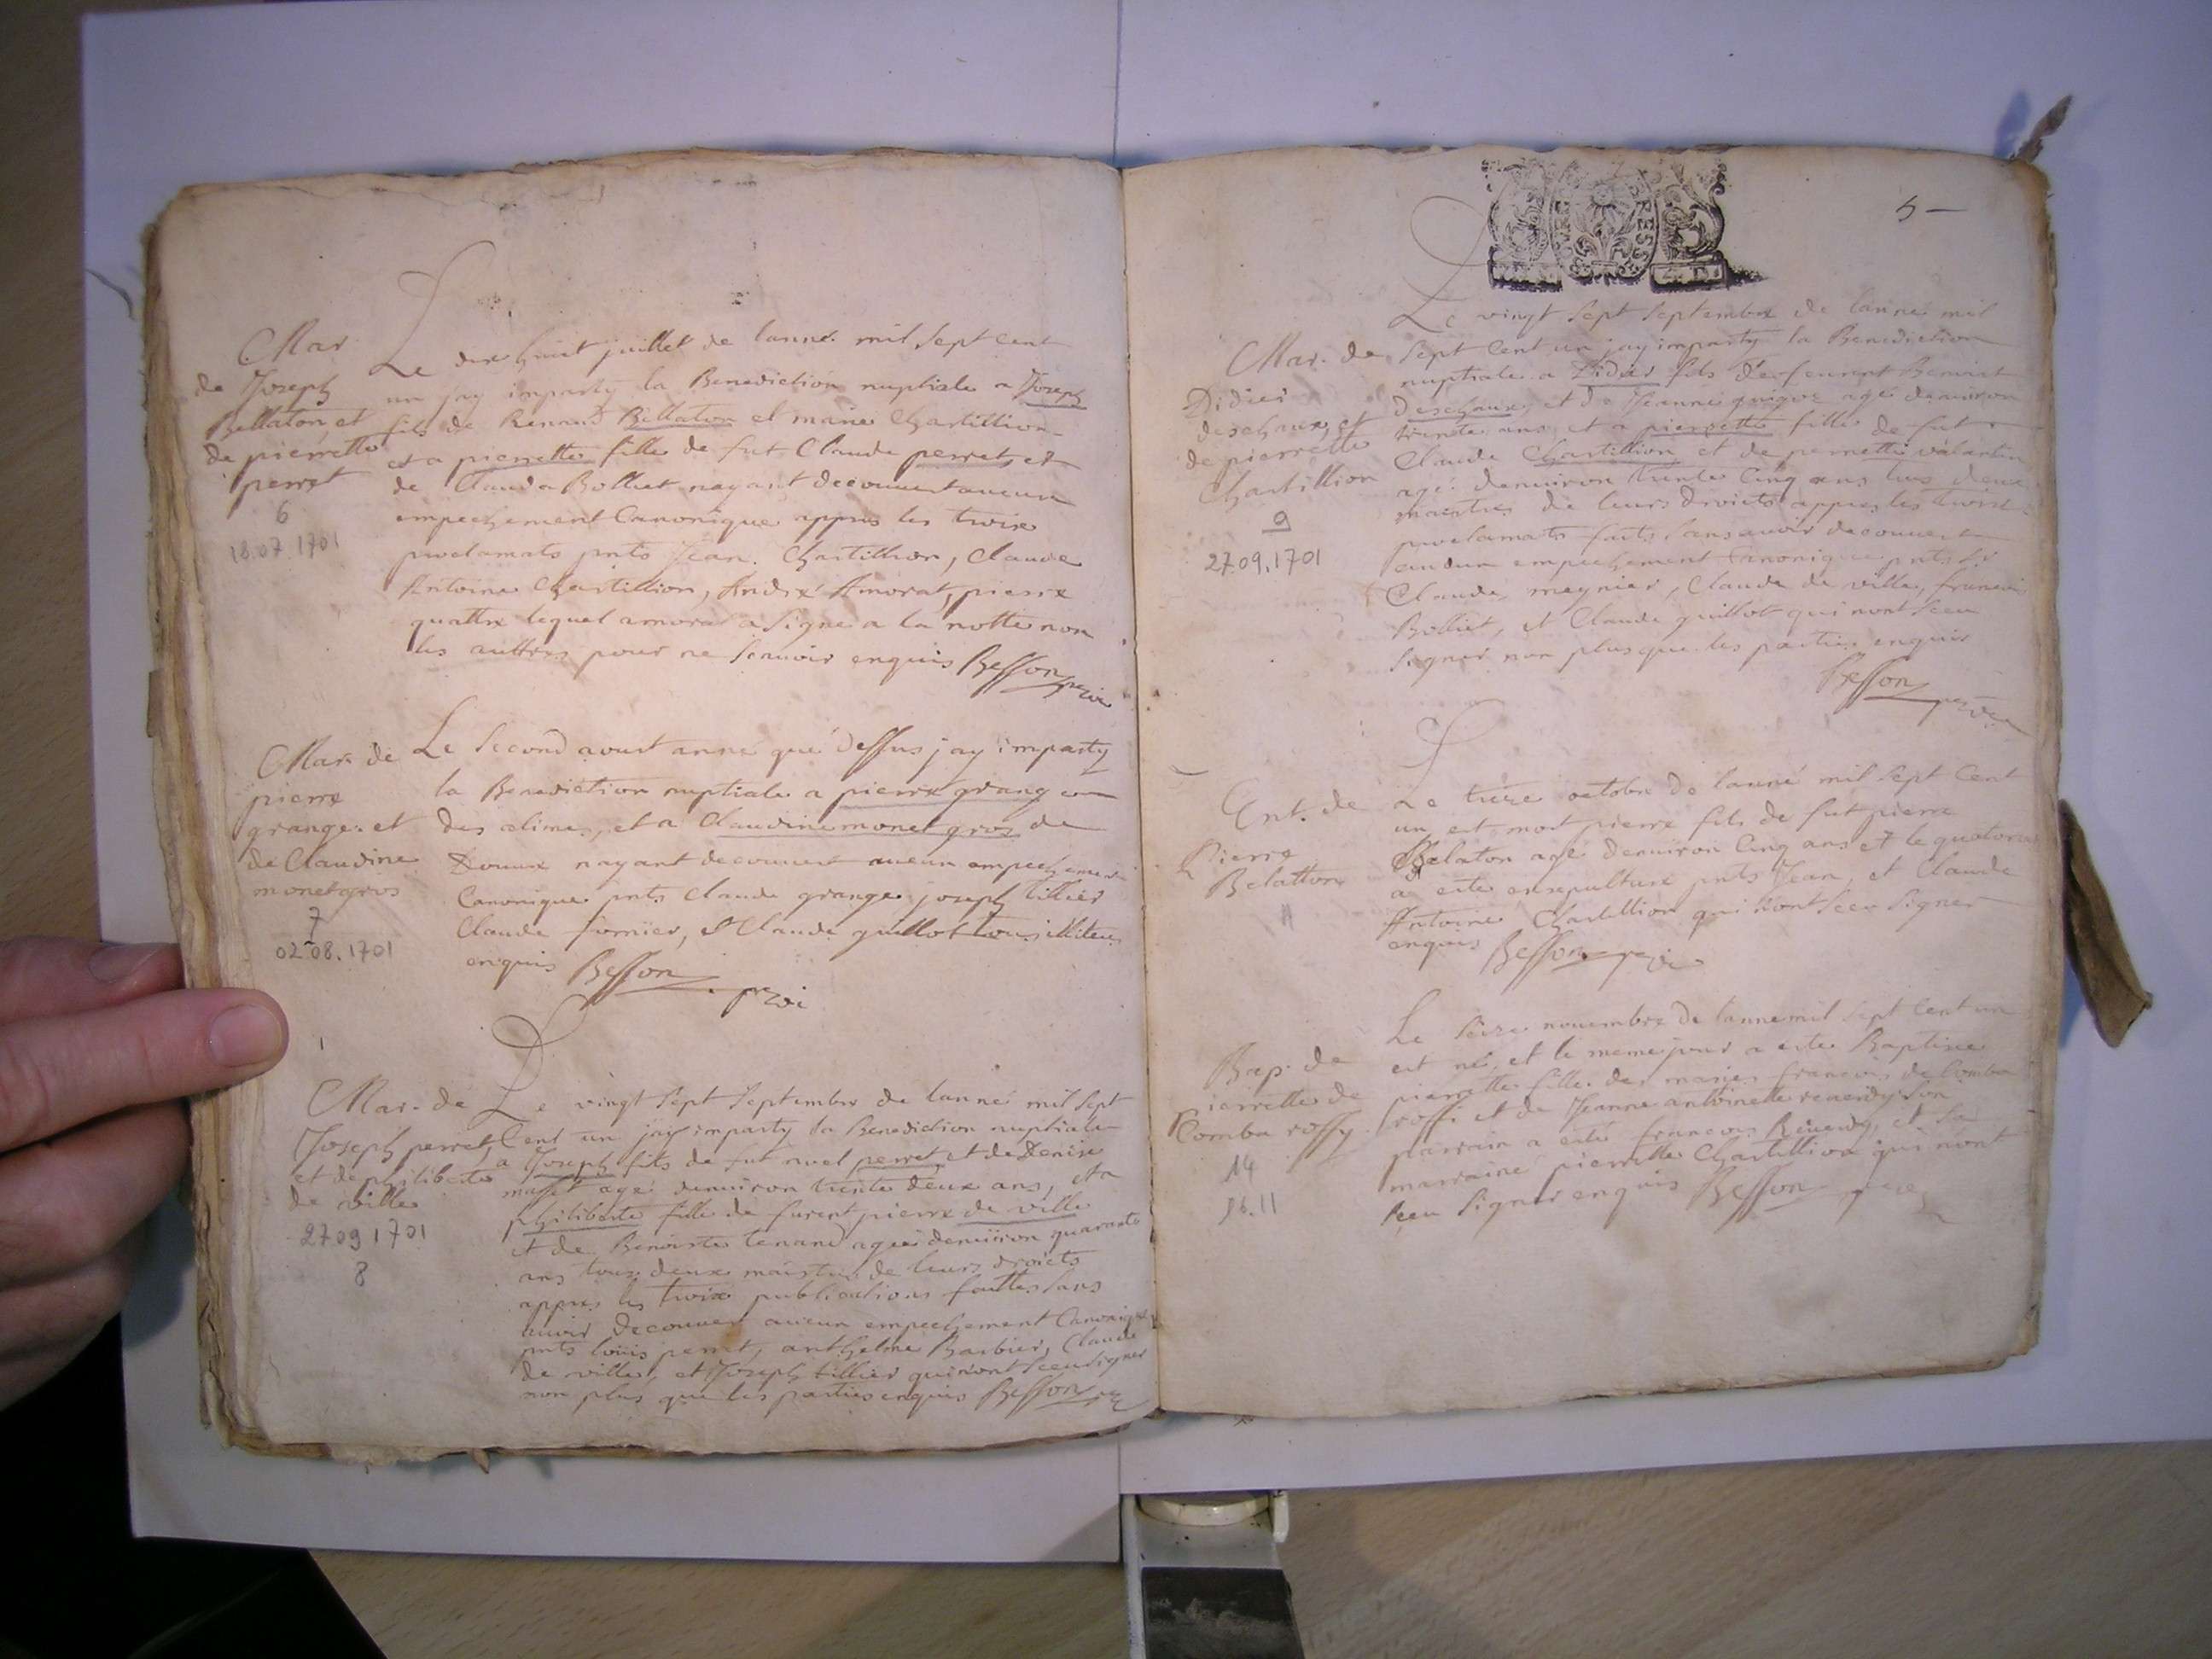 Mar
de Joseph
Bellaton, et
de pierrette
perret
6
18.07.1701
Le dix huict juillet de lanné mil sept cent
un jay imparty la Benediction nuptiale a Joseph
fils de Renaud Billaton et marie Chastillion
et a pierrette fille de fut Claude perret, et
de Clauda Bolliet nayant decouuert aucun
empechement Canonique appres les troix
proclamats pnts Jean Chastillion, Claude
Antoine Chastillion, André Amorat, pierre
quattre lequel amorat a signe a la notte non
les auttres pour ne scauoir enquis Besson
Mar. de
pierre
grange. et
de Claudine
monet gros
7
02.08.1701
Le second aoust anné que dessus jay imparty
la Benediction nuptiale a pierre grange
des et a Claudine monet gros de
nayant decouuert aucun empechement
Canonique pnts Claude grange, joseph tillier
Claude fornier, et Claude guillot tous illiteres
enquis Besson
Mar. de
Joseph perret,
et de philiberte
de ville
27 09 1701
8
Le vingt sept septembre de lanné mil sept
Cent un jay imparty la Benediction nuptiale
a Joseph fils de fut nuel perret et de Denise
masset agé denuiron trente deux ans, et a
philiberte fille de furent pierre de ville
et de Benoiste tenand ageé denuiron quarante
ans tous deux maistres de leurs droicts
appres les troix publications faittes sans
auoir decouuert aucun empechement Canonique
pnts louis perret, anthelme Barbier, Claude
de ville, et Joseph tillier qui nont sceu signer
non plus que les parties enquis Besson
5 -
Mar. de
Didier
deschaux, et
de pierrette
Chastillion
9
27.09.1701
Le vingt sept septembre de lanné mil
sept Cent un jay imparty la Benediction
nuptiale a Didier fils de furent Benoist
Deschaux, et de Jeanne guigoz agé denuiron
trente ans et a pierrette fille de fut
Claude Chastillion et de pernette valantin
agé denuiron trente Cinq ans tous deux
maistres de leurs droicts appres les troix
proclamats faits sans auoir decouuert
aucun empechement Canonique pnts
Claude meynier, Claude de ville, francois
Bolliet, et Claude guillot qui nont sceu
signer non plus que les parties enquis
Besson
Ent. de
Pierre
Belatton
11
Le treize octobre de lanné mil sept Cent
un est mort pierre fils de fut pierre
Belaton agé denuiron Cinq ans et le quatorze
a esté ensepulturé pnts Jean, et Claude
Antoine Chastillion qui nont sceu signer
enquis Besson
Bap. de
pierrette de
Comba roffy
14
16.11
Le seize nouembre de lanné mil sept Cent un
est né, et le meme jour a esté Baptisée
pierrette fille des mariés francois de Comba
roffi et de Jeanne antoinette reuerdy son
parrain a esté francois Reuerdy, et sa
marraine pierrette Chastillion qui nont
sceu signer enquis Besson